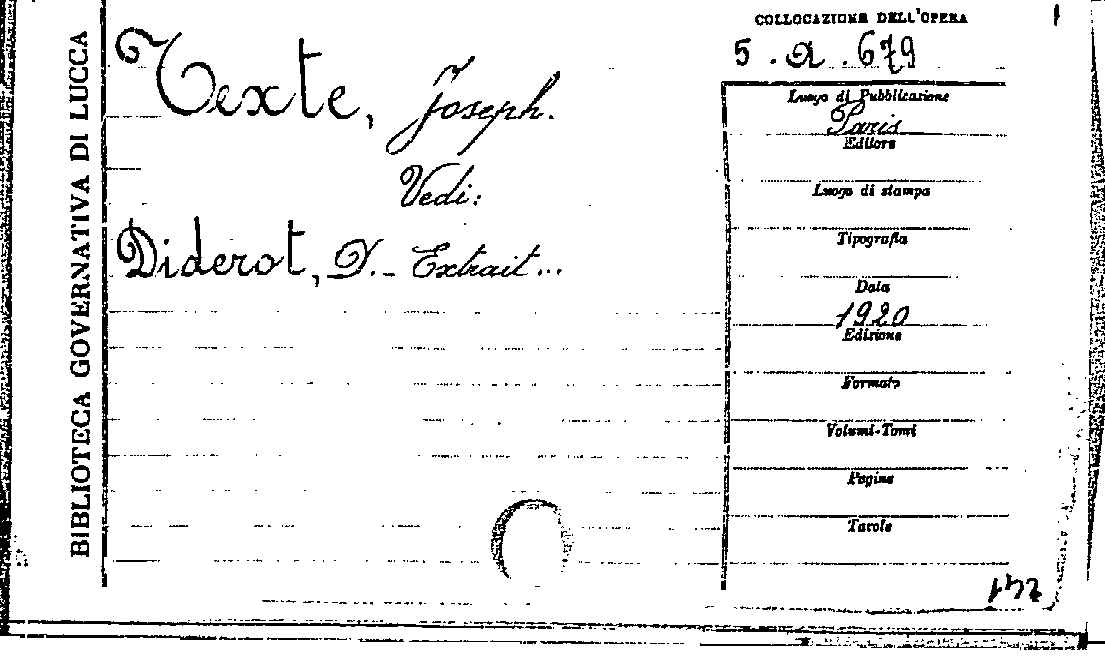 BIBLIOTECA GOVERNATIVA DI LUCCA
Texte, Joseph.
Vedi:
Diderot, D. - Extrait...
COLLOCAZIONE DELL'OPERA
5 . a . 679
Luogo di Pubblicazione
Paris
Editore
Luogo di stampa
Tipografia
Data
1920
Edizione
Formato
Volumi-Tomi
Pagine
Tavole